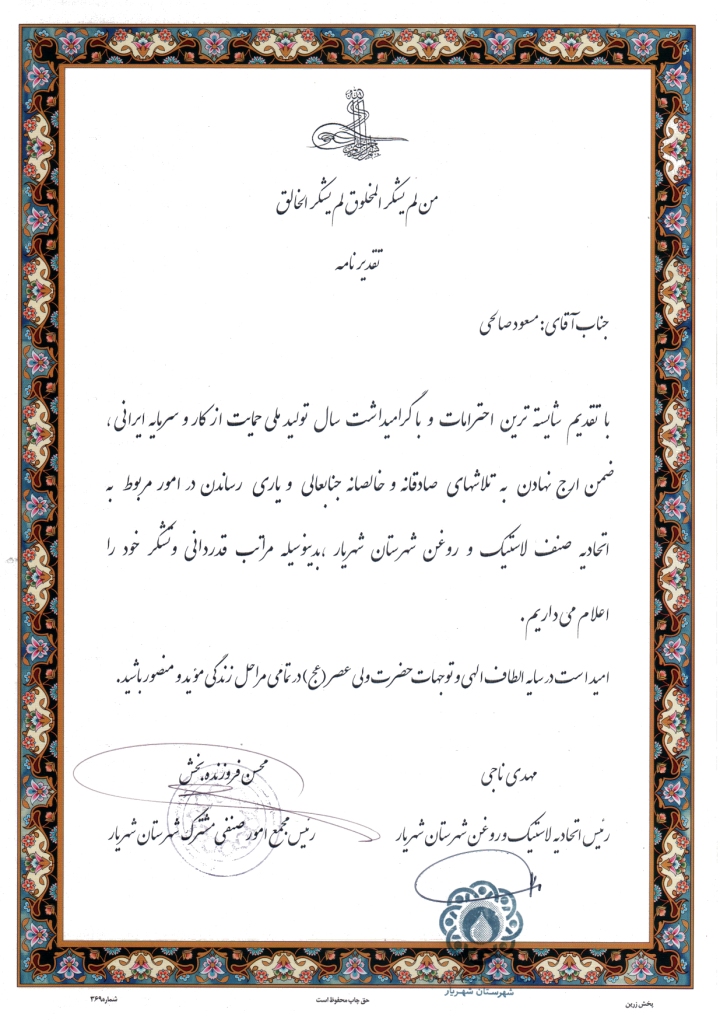 من لم یشکر المخلوق لم یشکر الخالق
تقدیرنامه
جناب آقای: مسعود صالحی
با تقدیم شایسته ترین احترامات و با گرامیداشت سال تولید ملی حمایت از کار و سرمایه ایرانی،
ضمن ارج نهادن به تلاشهای صادقانه و خالصانه جنابعالی و یاری رساندن در امور مربوط به
اتحادیه صنف لاستیک و روغن شهرستان شهریار ،بدینوسیله مراتب قدردانی و تشکر خود را
اعلام می داریم.
امید است در سایه الطاف الهی و توجهات حضرت ولی عصر(عج) در تمامی مراحل زندگی مؤید و منصور باشید.
مهدی ناجی
رئیس اتحادیه لاستیک و روغن شهرستان شهریار
محسن فروزنده بخش
رئیس مجمع امور صنفی مشترک شهرستان شهریار
شهرستان شهریار
پخش زرین
حق چاپ محفوظ است
شماره ۳۶۹